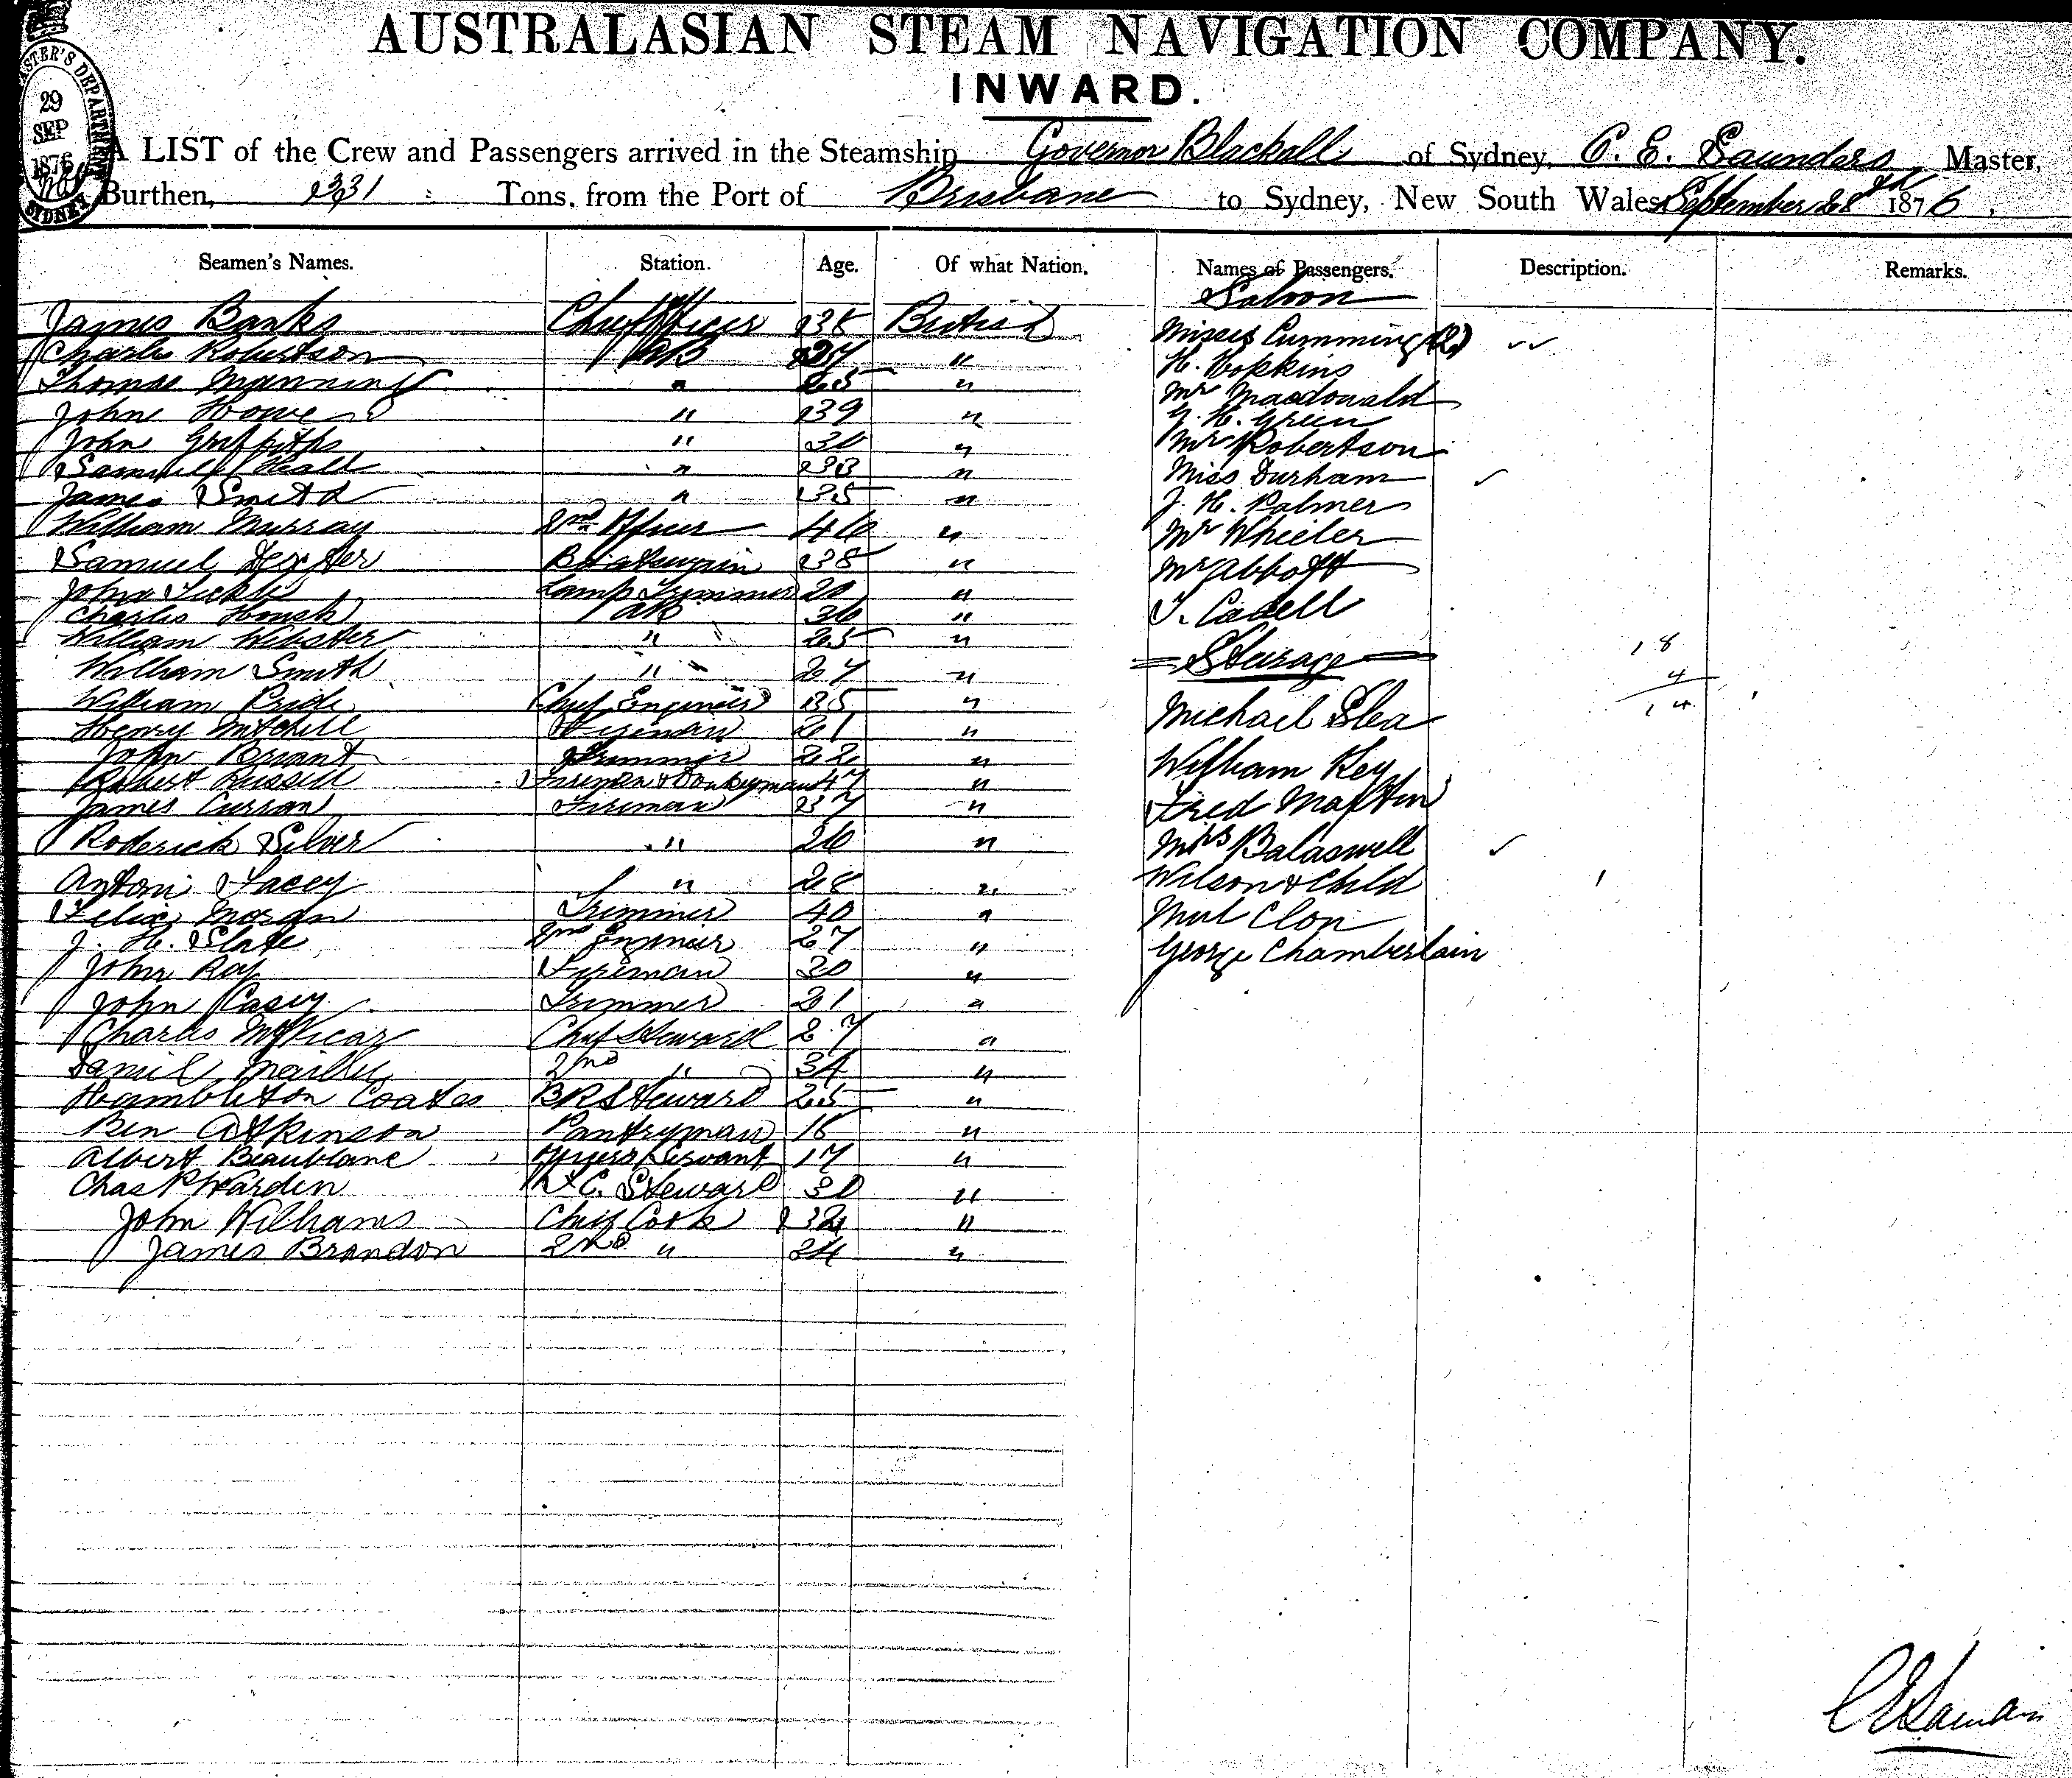 AUSTRALASIAN STEAM NAVIGATION COMPANY.
INWARD.
MASTER'S DEPARTMENT
29
SEP
1876
SYDNEY
A LIST of the Crew and Passengers arrived in the Steamship Governor Blackall of Sydney, C. E. Saunders Master,
Burthen, 331 Tons, from the Port of Brisbane to Sydney, New South Wales September 28th 1876
Seamen's Names. Station. Age. Of what Nation. Names of Passengers. Description. Remarks.
James Banks Chief Officer 38 British
Charles Robertson AB 27 "
Thomas Manning " 25 "
John Howe " 39 "
John Griffiths " 30 "
Samuel Heall " 33 "
James Smith " 35 "
William Murray 2nd Officer 46 "
Samuel Dexter Boatswain 38 "
John Lamp Trimmer 20 "
Charles AB 36 "
William Webster " 25 "
William Smith " 27 "
William Pride Chief Engineer 35 "
Henry Mitchell Fireman 21 "
John Briant Trimmer 22 "
Robert Russell Fireman & Donkeyman 47 "
James Curran Fireman 37 "
Roderick Silver " 26 "
Antoni Facey " 28 "
Felix Moran Trimmer 40 "
J. H. Slate 2nd Engineer 27 "
John Ray Fireman 30 "
John Casey Trimmer 21 "
Charles McVicar Chief Steward 27 "
Daniel 2nd " 34 "
Hambleton Coates BR Steward 25 "
Ben Atkinson Pantryman 16 "
Albert Beaublanc Servant 17 "
Chas P Harden F C. Steward 30 "
John Williams Chief Cook 32 "
James Brandon 2nd " 34 "
Saloon
Misses Cumming (2)
H. Hopkins
Mr Macdonald
G. H. Green
Mr Robertson
Miss Durham
J. H. Palmer
Mr Wheeler
Mr Abbott
T. Cadell
Steerage
Michael Slea
William Key
Fred Martin
Mrs Balaswell
Wilson & Child
Mul Clon
George Chamberlain
18
4
14
C E Saunders